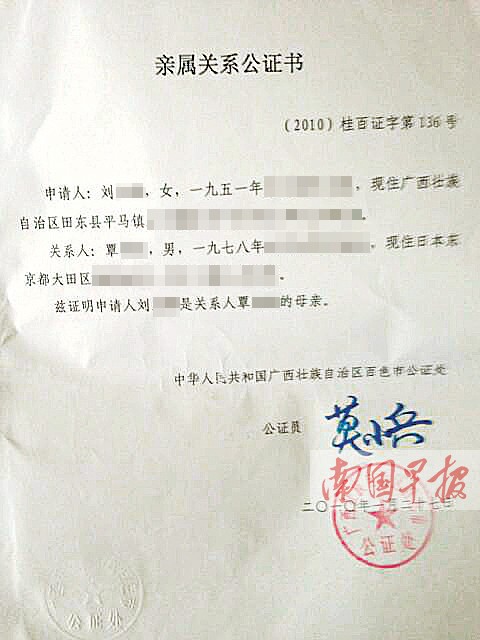 亲属关系公证书
（2010）桂百证字第136号
申请人：刘，女，一九五一年，现住广西壮族
自治区田东县平马镇。
关系人：覃，男，一九七八年，现住日本东
京都大田区。
兹证明申请人刘是关系人覃的母亲。
中华人民共和国广西壮族自治区百色市公证处
公证员 莫小兵
南国早报
二〇一〇年 月二十七日
公证处
公证处